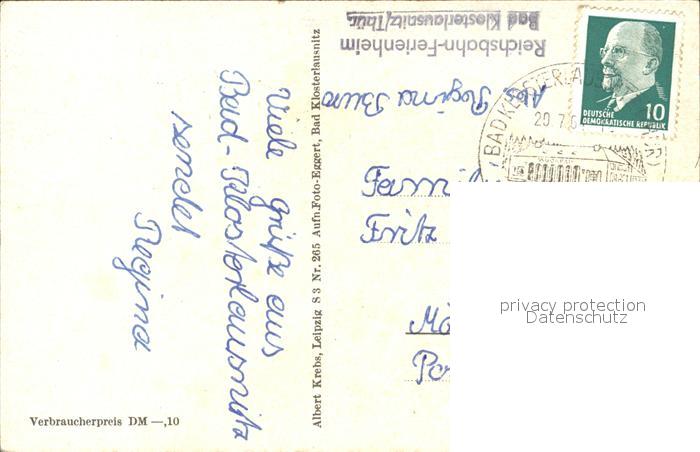 Viele Grüße aus
Bad-Klosterlausnitz
sendet
Regina
Verbraucherpreis DM —,10
Albert Krebs, Leipzig S 3 Nr. 265 Aufn.Foto-Eggert, Bad Klosterlausnitz
Reichsbahn-Ferienheim
Bad Klosterlausnitz/Thür.
Abs. Regina
10
DEUTSCHE
DEMOKRATISCHE REPUBLIK
BAD KLOSTERLAUS
20.7.6
Fami
Fritz
privacy protection
Datenschutz